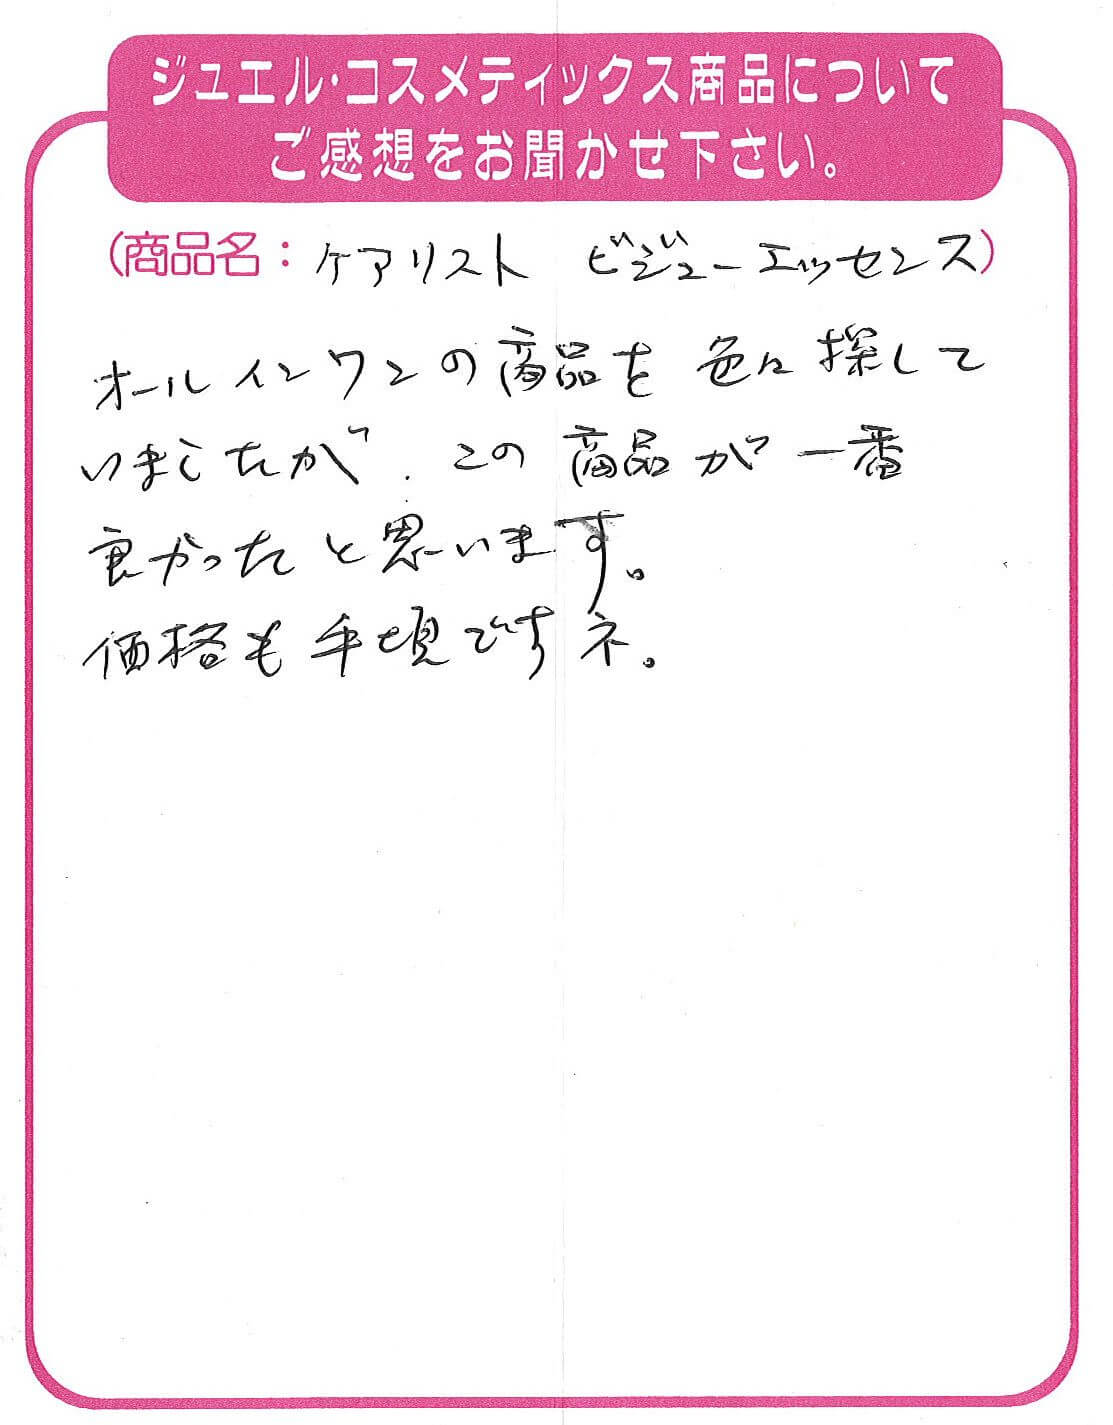 ジュエル・コスメティックス商品について
ご感想をお聞かせ下さい。
(商品名：ケアリスト ビジューエッセンス)
オールインワンの商品を色々探して
いましたが、この商品が一番
良かったと思います。
価格も手頃ですネ。